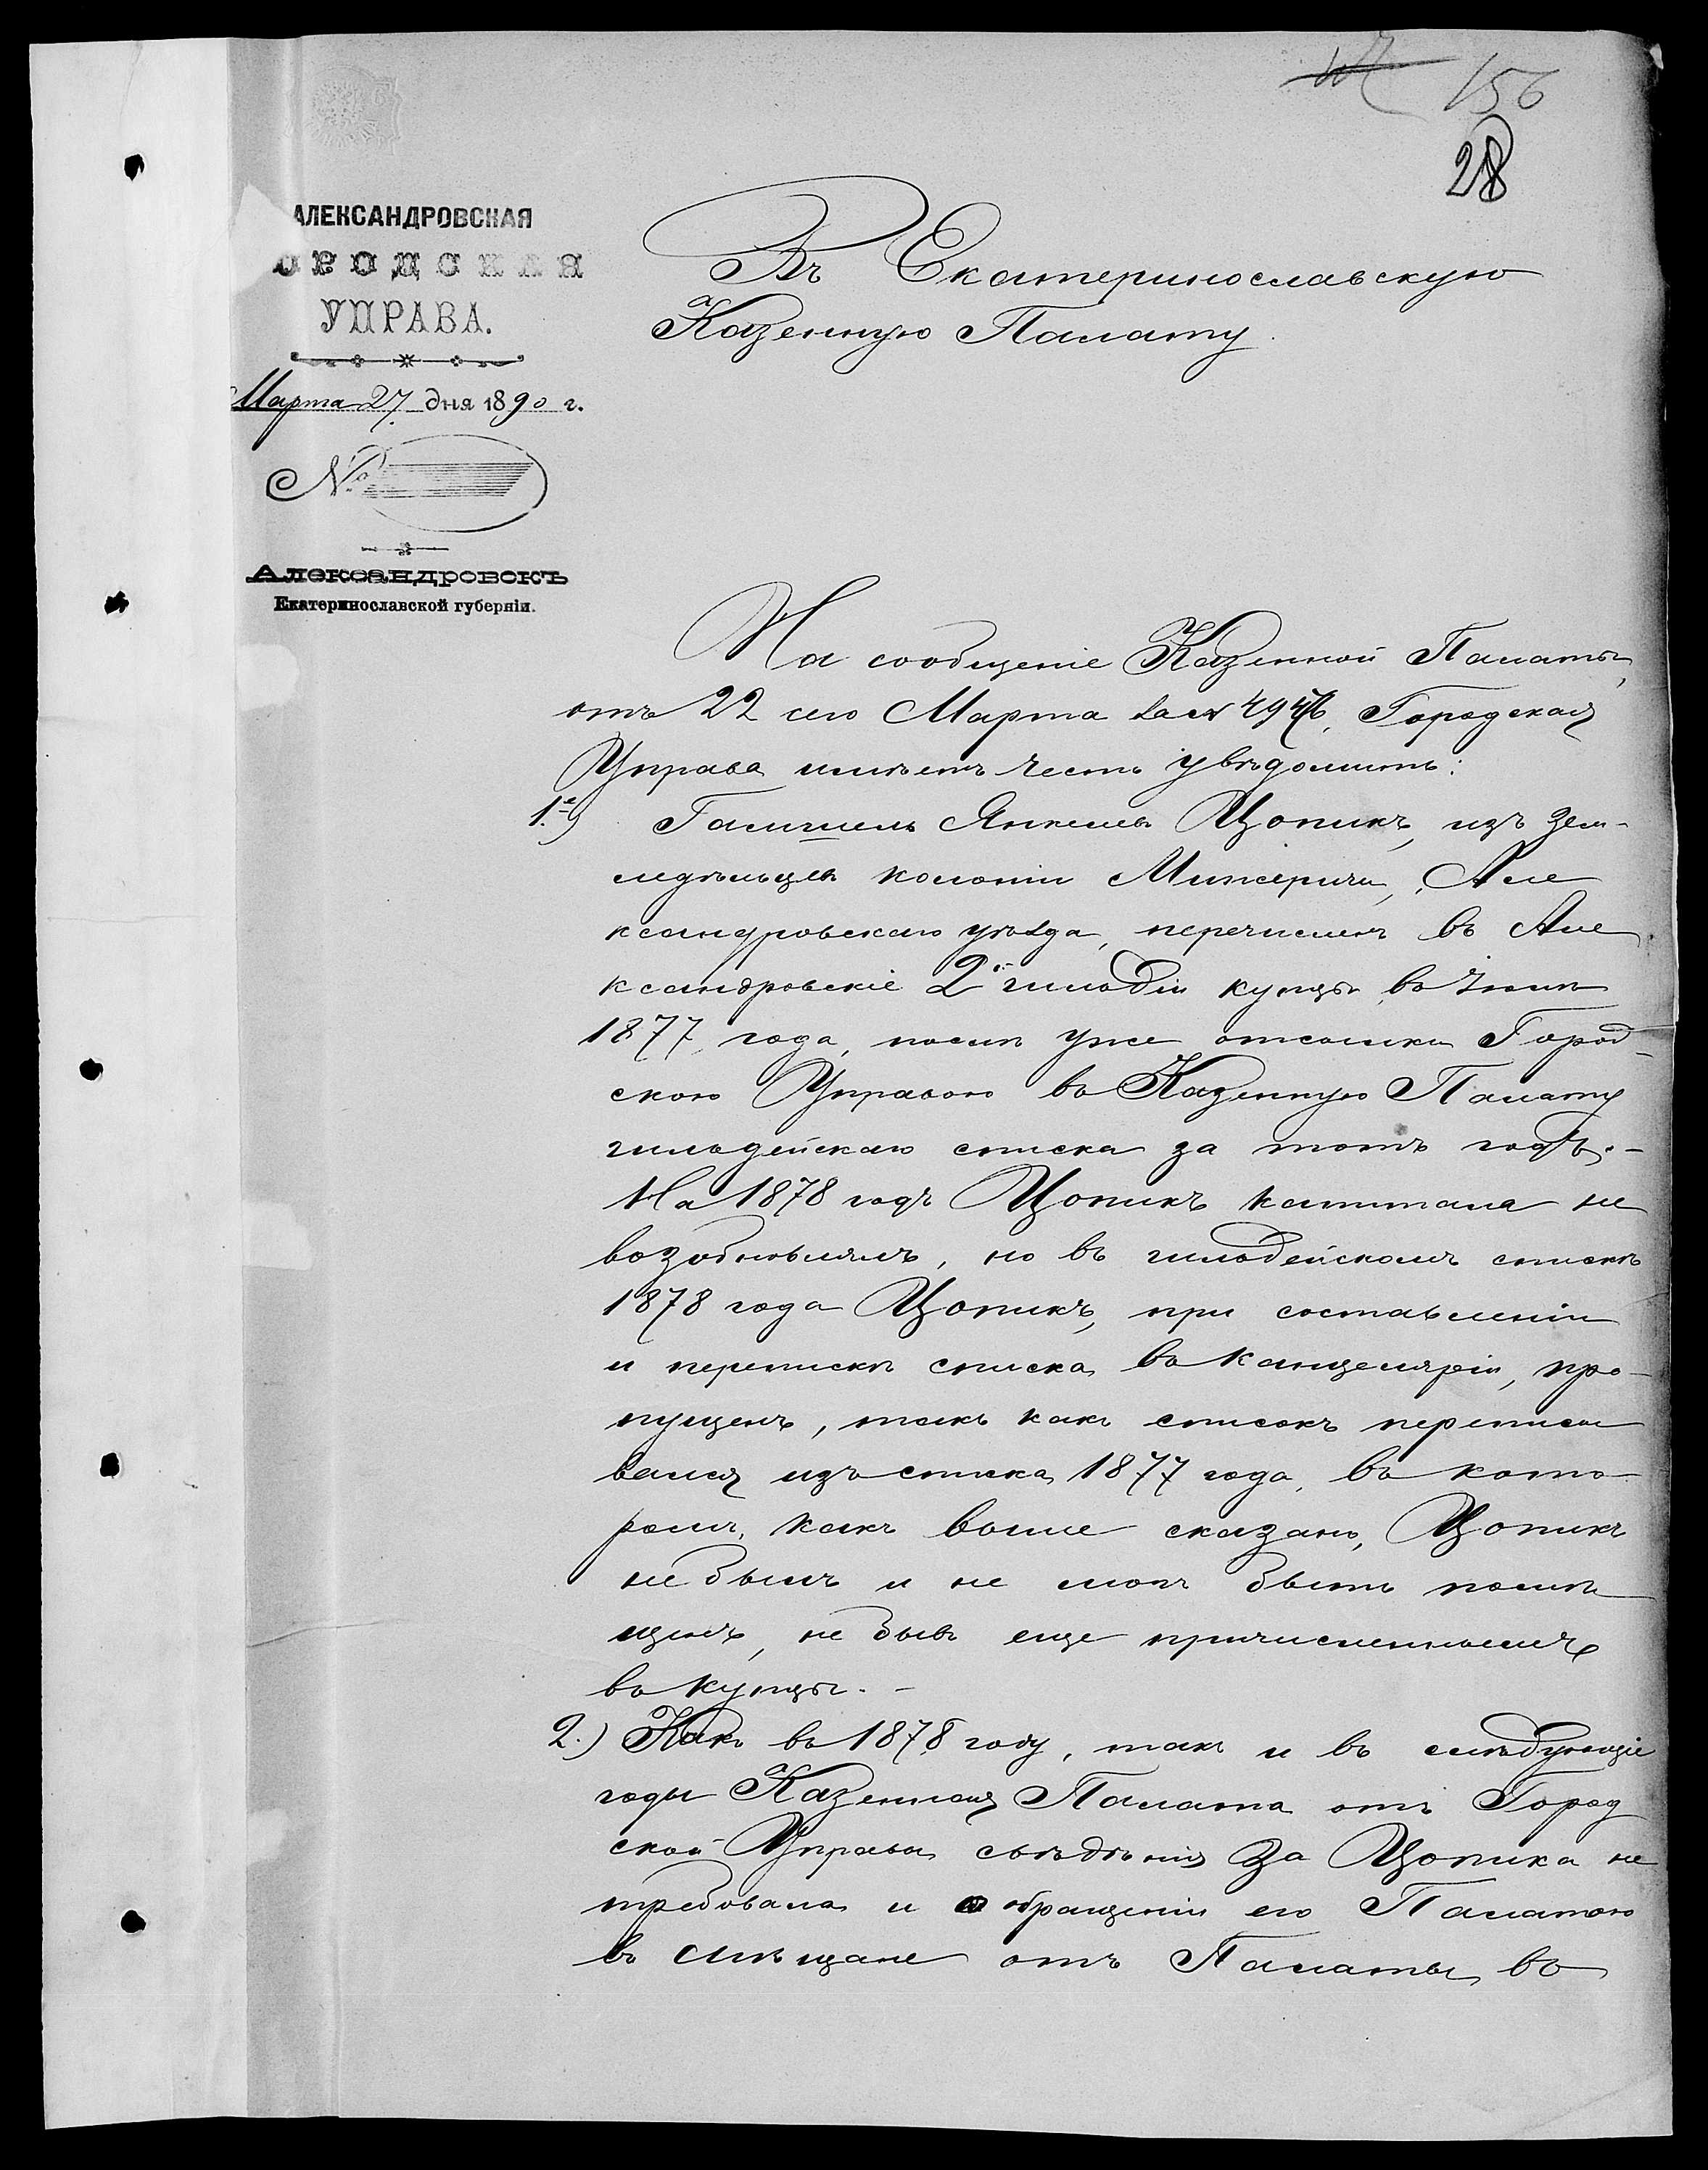 156
28
АЛЕКСАНДРОВСКАЯ
ОРОДСКАЯ
УПРАВА.
Марта 27 дня 1890 г.
№
Александровскъ
Екатеринославской губерніи.
Въ Екатеринославскую
Казенную Палату.
На сообщеніе Казенной Палаты,
отъ 22 сего Марта за № Городская
Управа имѣетъ честь увѣдомить:
1.е) Янкель Цопикъ, изъ зем-
ледѣльцевъ колоніи Межеричи, Але
ксандровскаго уѣзда, перечисленъ въ Але
ксандровскіе 2й гильдіи купцы въ Іюнѣ
1877 года, послѣ уже отсылки Город-
скою Управою въ Казенную Палату
гильдейскаго списка за тотъ годъ.-
На 1878 годъ Цопикъ капитала не
возобновлялъ, но въ гильдейскомъ спискѣ
1878 года Цопикъ, при составленіи
и перепискѣ списка въ канцеляріи, про-
пущенъ, такъ какъ списокъ переписы
вался изъ списка 1877 года, въ кото-
ромъ, какъ выше сказано, Цопикъ
не былъ и не могъ быть помѣ
щенъ, не бывъ еще причисленнымъ
въ купцы.-
2.) Какъ въ 1878 году, такъ и въ слѣдующіе
годы Казенная Палата отъ Город
ской Управы свѣдѣнія за Цопика не
требовала и о обращеніи его Палатою
въ мѣщане отъ Палаты въ